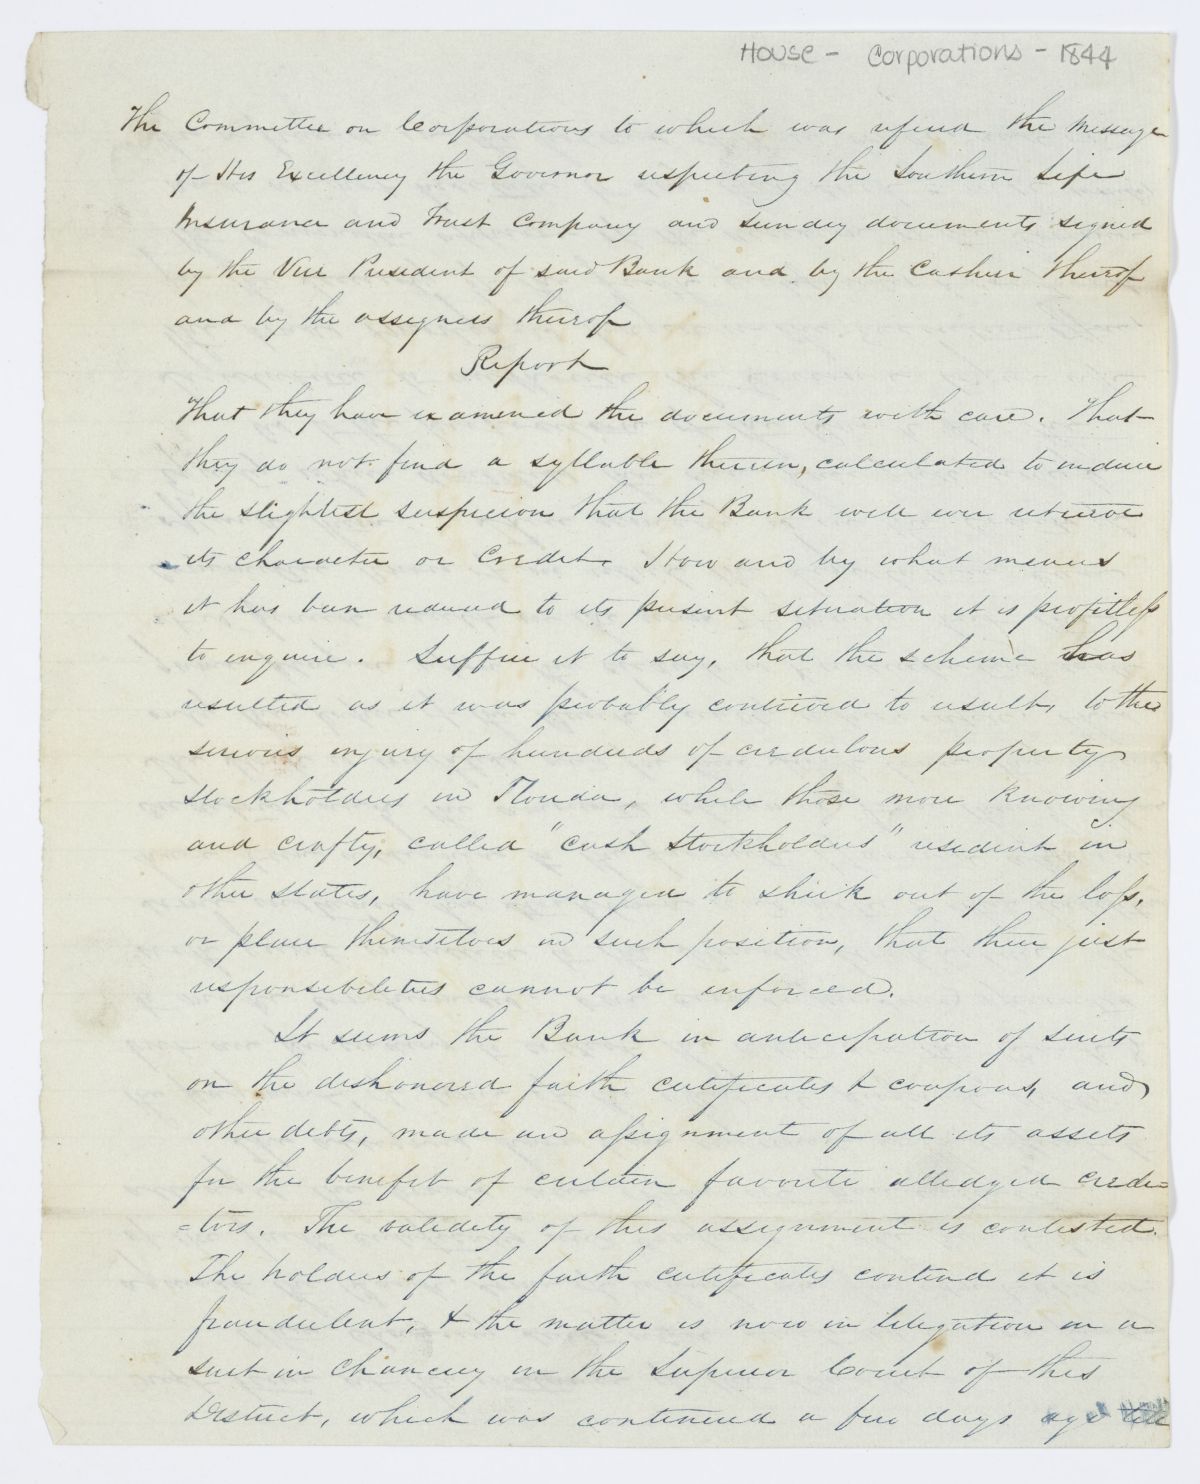 House - Corporations - 1844
The Committee on Corporations to which was referred the Message
of His Excellency the Governor respecting the Southern Life
Insurance and Trust Company and sundry documents signed
by the Vice President of said Bank and by the Cashier thereof
and by the assignees thereof
Report
That they have examined the documents with care. That
they do not find a syllable therein, calculated to induce
the slightest suspicion that the Bank will ever retrieve
its character or credit. How and by what means
it has been reduced to its present situation it is profitless
to inquire. Suffice it to say, that the scheme has
resulted as it was probably contrived to result, to the
serious injury of hundreds of credulous property
stockholders in Florida, while those more knowing
and crafty, called "cash stockholders" resident in
other states, have managed to shirk out of the loss,
or place themselves in such position, that their just
responsibilities cannot be enforced.
It seems the Bank in anticipation of suits
on the dishonored faith certificates & coupons, and
other debts, made an assignment of all its assets
for the benefit of certain favorite alledged credi=
=tors. The validity of this assignment is contested.
The holders of the faith certificates contend it is
fraudulent, & the matter is now in litigation in a
suit in Chancery in the Superior Court of this
District, which was continued a few days ago till